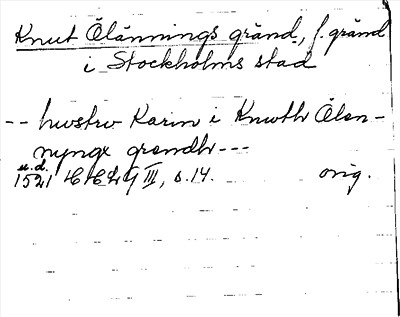 Knut Ölännings gränd, f. gränd
i Stockholms stad
-- hwstrv Karin i Knwth Ölen-
nynge grendh ---
u.d.
1521 s. 14. orig.